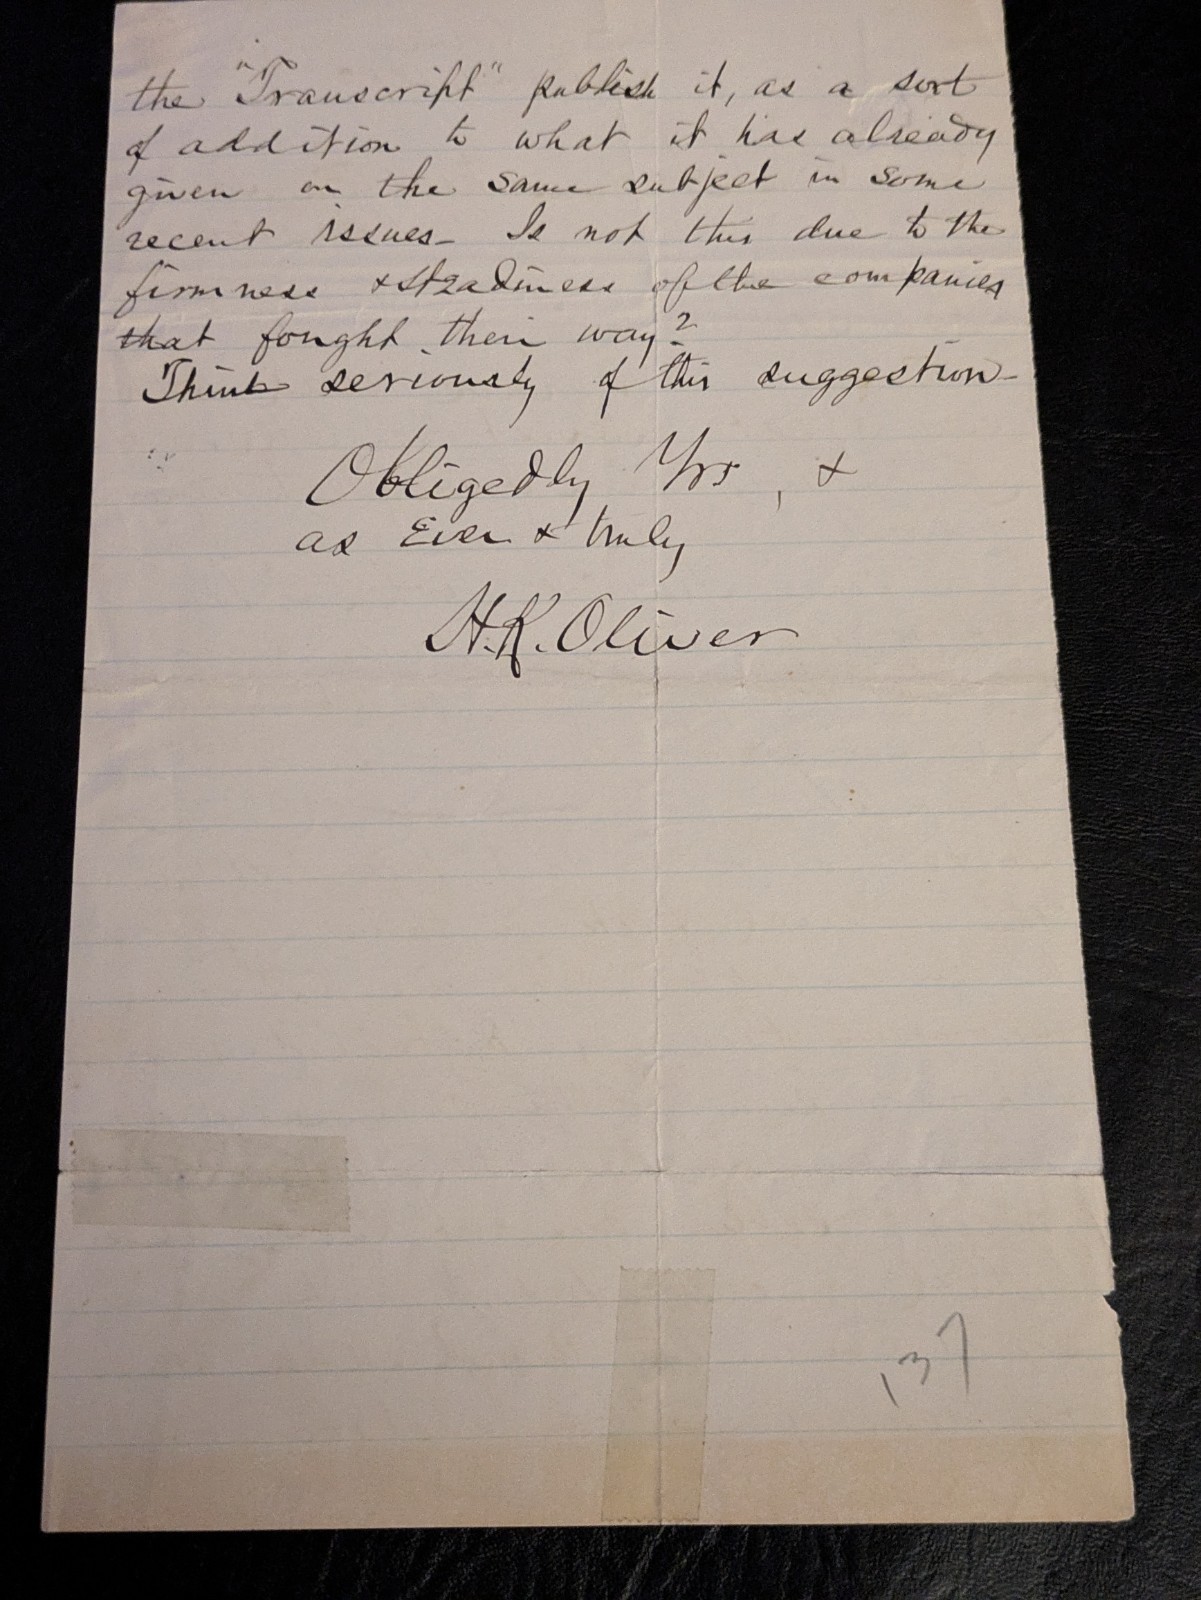 the "Transcript" publish it, as a sort
of addition to what it has already
given on the same subject in some
recent issues— Is not this due to the
firmness & steadiness of the companies
that fought their way?
Think seriously of this suggestion—
Obligedly Yrs, &
as Ever & truly
H.K. Oliver
137